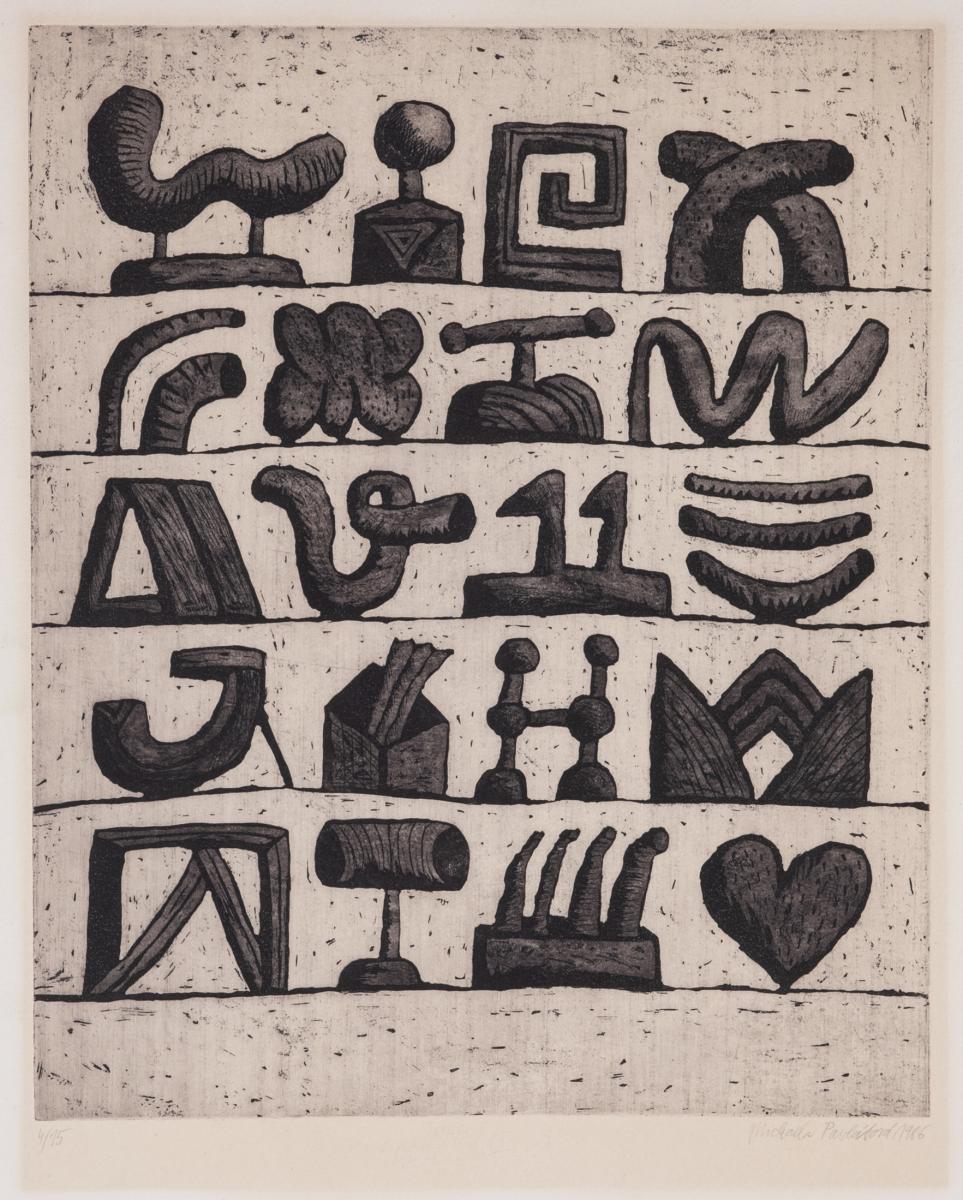 4/15 Michaela Pavlátová 1986